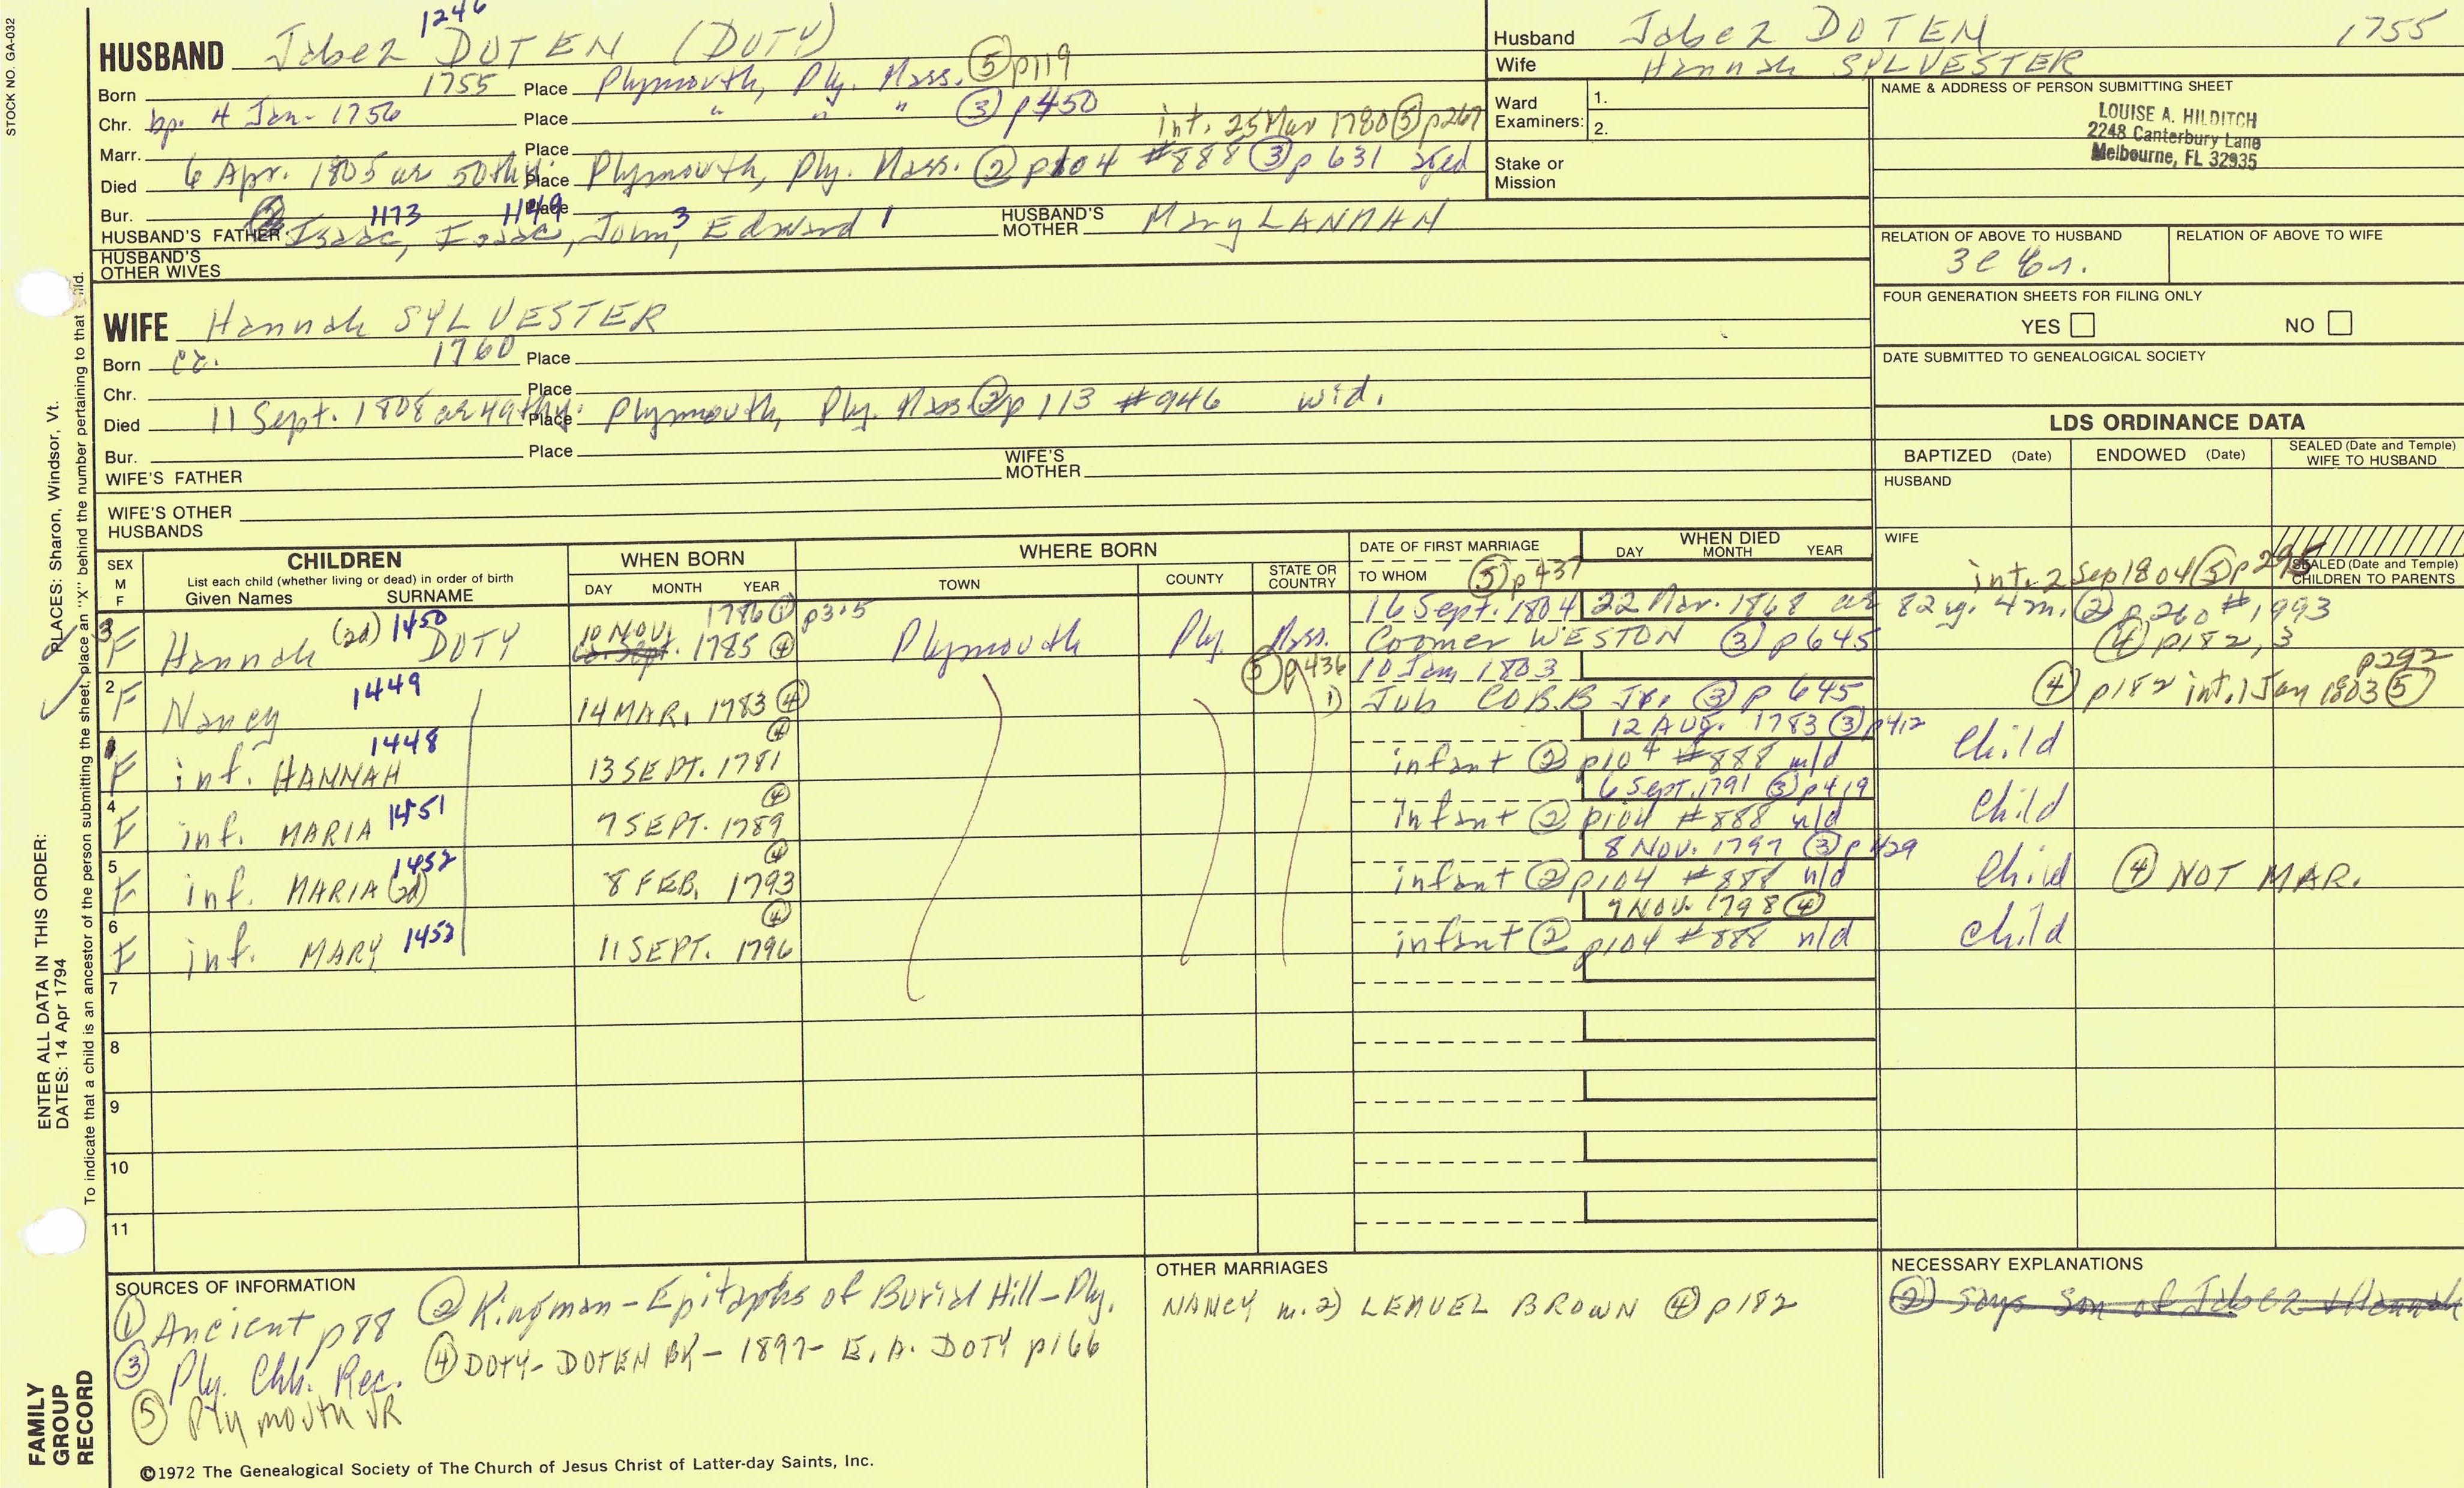 STOCK NO. GA-032
1246
HUSBAND Jabez DOTEN (DOTY)
Born 1755 Place Plymouth, Ply. Mass. ⑤ p119
Chr. bp. 4 Jan. 1756 Place " " " ③ p450
int. 25 Mar 1780 ⑤ p267
Marr. Place
Died 6 Apr. 1805 ae 50thy. Place Plymouth, Ply. Mass. ② p104 #888 ③ p 631
Bur. Place
HUSBAND'S FATHER Isaac, 1173 Isaac, 1149 John, 3 Edward 1
HUSBAND'S MOTHER Mary LANMAN
HUSBAND'S OTHER WIVES
Husband Jabez DOTEN 1755
Wife Hannah SYLVESTER
Ward Examiners: 1.
2.
Stake or Mission
NAME & ADDRESS OF PERSON SUBMITTING SHEET
LOUISE A. HILDITCH
2248 Canterbury Lane
Melbourne, FL 32935
RELATION OF ABOVE TO HUSBAND
3c
RELATION OF ABOVE TO WIFE
FOUR GENERATION SHEETS FOR FILING ONLY
YES NO
DATE SUBMITTED TO GENEALOGICAL SOCIETY
WIFE Hannah SYLVESTER
Born 1760 Place
Chr. Place
Died 11 Sept. 1808 ae 49thy. Place Plymouth, Ply. Mass ② p 113 #946 wid.
Bur. Place
WIFE'S FATHER
WIFE'S MOTHER
WIFE'S OTHER HUSBANDS
LDS ORDINANCE DATA
BAPTIZED (Date)
ENDOWED (Date)
SEALED (Date and Temple) WIFE TO HUSBAND
HUSBAND
WIFE
SEALED (Date and Temple) CHILDREN TO PARENTS
SEX M F
CHILDREN
List each child (whether living or dead) in order of birth
Given Names SURNAME
WHEN BORN
DAY MONTH YEAR
WHERE BORN
TOWN COUNTY STATE OR COUNTRY
DATE OF FIRST MARRIAGE
TO WHOM
WHEN DIED
DAY MONTH YEAR
⑤ p437
int. 2 Sep 1804 ⑤ p295
3 F Hannah (2d) 1450 DOTY
1786 ① p305
10 NOV. 1785 ④
Plymouth Ply. Mass.
16 Sept. 1804 22 Mar. 1868 ae 82 y. 4 m. ② p260 #1993
Coomer WESTON ③ p645
④ p182, 3
2 F Nancy 1449
14 MAR. 1783 ④
⑤ p436 10 Jan 1803
1) Job COBB Jr. ③ p 645
④ p182 int. 1 Jan 1803 ⑤ p292
F inf. HANNAH 1448
13 SEPT. 1781 ④
12 AUG. 1783 ③ p412
infant ② p104 #888 n/d
Child
4 F inf. MARIA 1451
7 SEPT. 1789 ④
6 Sept. 1791 ③ p419
infant ② p104 #888 n/d
Child
5 F inf. MARIA (2d) 1452
8 FEB. 1793 ④
8 NOV. 1797 ③ p429
infant ② p104 #888 n/d
Child ④ NOT MAR.
6 F inf. MARY 1453
11 SEPT. 1796 ④
7 NOV. 1798 ④
infant ② p104 #888 n/d
Child
7
8
9
10
11
SOURCES OF INFORMATION
① Ancient p88 ② Kingman-Epitaphs of Burial Hill-Ply.
③ Ply. Chh. Rec. ④ DOTY-DOTEN BK-1897-E. A. DOTY p166
⑤ Plymouth VR
OTHER MARRIAGES
NANCY m. 2) LEMUEL BROWN ④ p182
NECESSARY EXPLANATIONS
② says son of Jabez & Hannah
©1972 The Genealogical Society of The Church of Jesus Christ of Latter-day Saints, Inc.
FAMILY GROUP RECORD
ENTER ALL DATA IN THIS ORDER:
DATES: 14 Apr 1794
PLACES: Sharon, Windsor, Vt.
To indicate that a child is an ancestor of the person submitting the sheet, place an "X" behind the number pertaining to that child.